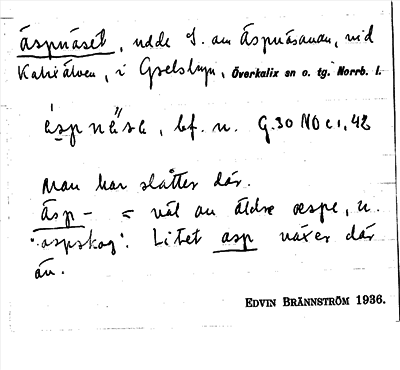 Äspnäset, udde S. om Äspnäsavan, vid
Kalixälven, i Gyselsbyn, Överkalix sn o. tg. Norrb. l.
ä̀spnä́se, bf. n. G.30 NO c1, 42
Man har slåtter där.
Äsp- = väl av äldre œspe, n.
"aspskog". Litet asp växer där
än.
EDVIN BRÄNNSTRÖM 1936.